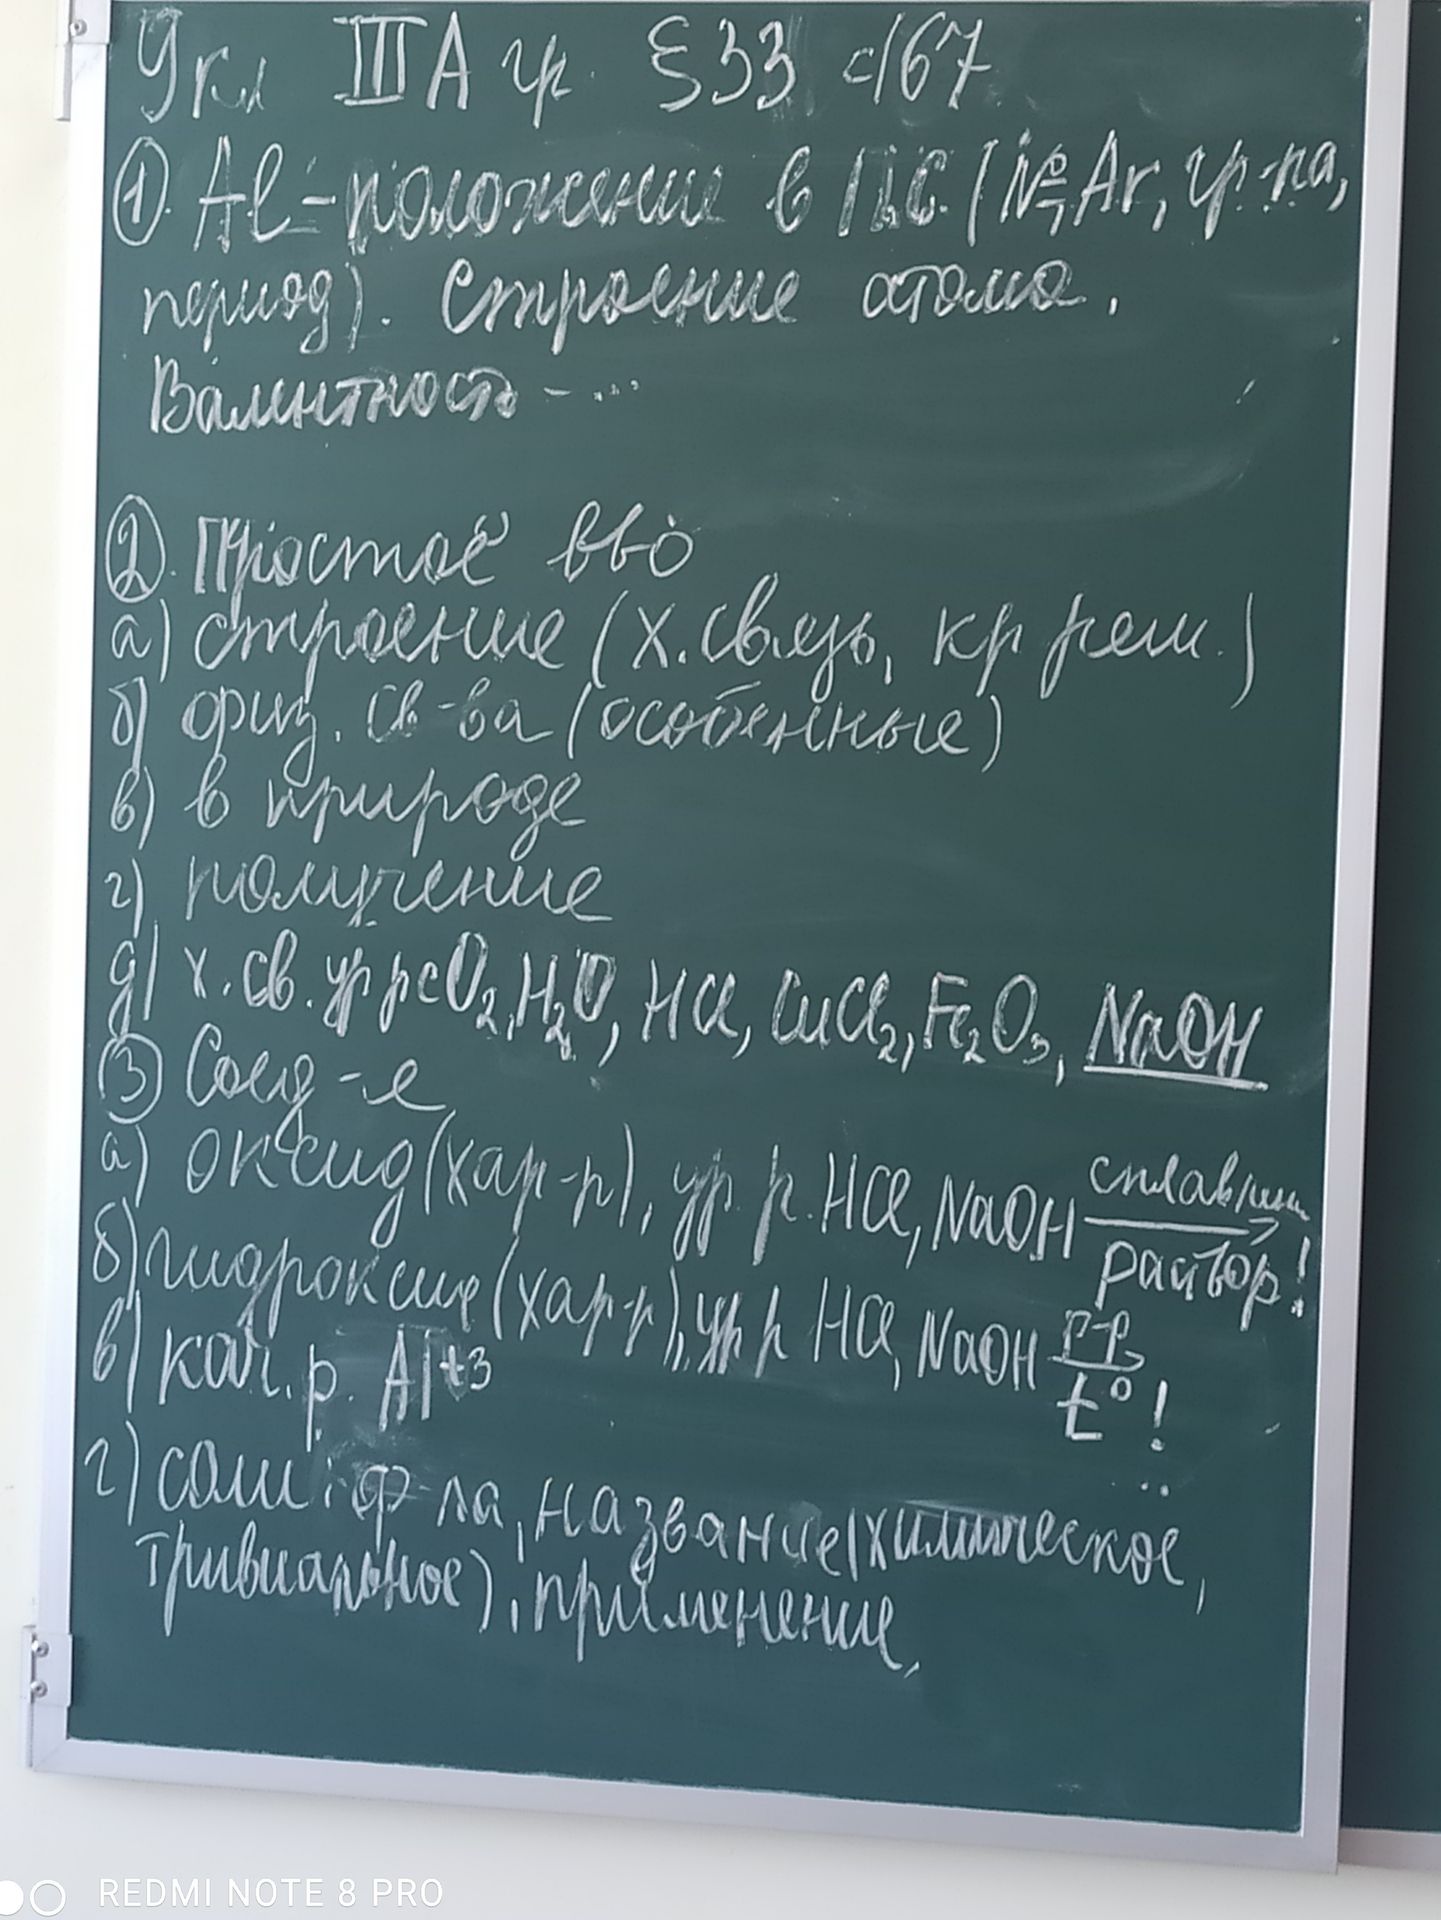 9 кл IIIA гр. §33 с167
①. Al - положение в П.С. (№, Ar, гр-па,
период). Строение атома.
Валентность - ...
②. Простое в-во
а) строение (х. связь, кр реш.)
б) физ. св-ва (особенные)
в) в природе
г) получение
д) х. св. ур р с O₂, H₂O, HCl, CuCl₂, Fe₂O₃, NaOH
③ Соед-я
а) оксид (хар-р), ур. р. HCl, NaOH сплавлени
раствор!
б) гидроксид (хар-р), ур р HCl, NaOH р-р
t°!
в) кач. р. Al⁺³
г) соли: ф-ла, название (химическое,
тривиальное), применение,
REDMI NOTE 8 PRO